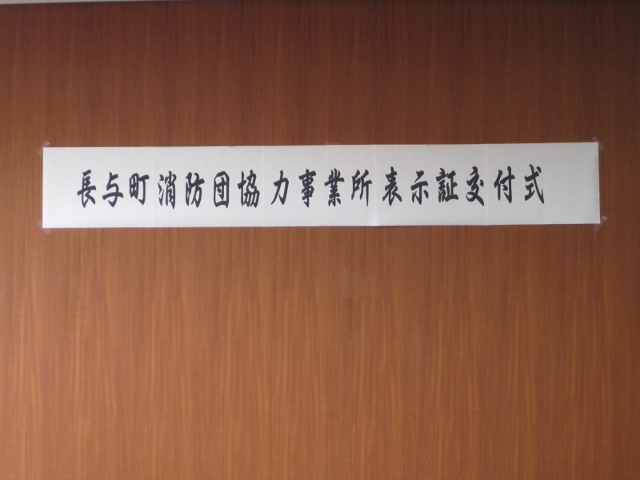 長与町消防団協力事業所表示証交付式